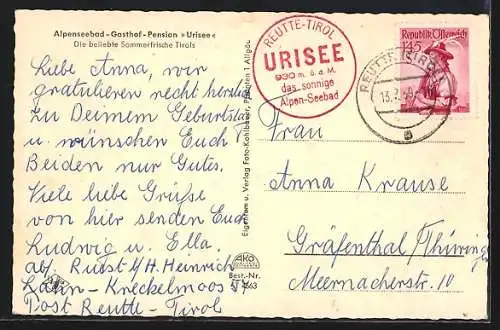 Alpenseebad - Gasthof - Pension »Urisee«
Die beliebte Sommerfrische Tirols
Liebe Anna, wir
gratulieren recht herzlich
zu Deinem Geburtstag
u. wünschen Euch
Beiden nur Gutes.
Viele liebe Grüsse
von hier senden Euch
Ludwig u. Ella.
H. Heinrich
Kahn - Kreckelmoos
Post Reutte - Tirol
Eigentum u. Verlag Foto-Kohlbauer, Pfronten / Allgäu
AKO
Best.-Nr.
REUTTE-TIROL
URISEE
930 m. ü. d. M.
das sonnige
Alpen-Seebad
Republik Österreich
1.45
REUTTE (TIROL)
a
Frau
Anna Krause
Gräfenthal/Thüringen
Meernacherstr. 10